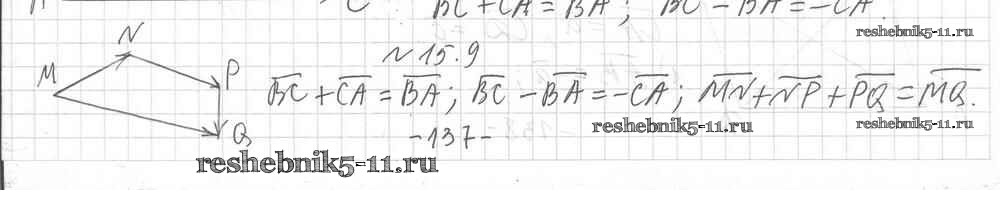 C BC + CA = BA; BC - BA = -CA.
reshebnik5-11.ru
N № 15.9
M P \overline{BC} + \overline{CA} = \overline{BA}; \overline{BC} - \overline{BA} = -\overline{CA}; \overline{MN} + \overline{NP} + \overline{PQ} = \overline{MQ}.
Q -137- reshebnik5-11.ru reshebnik5-11.ru
reshebnik5-11.ru